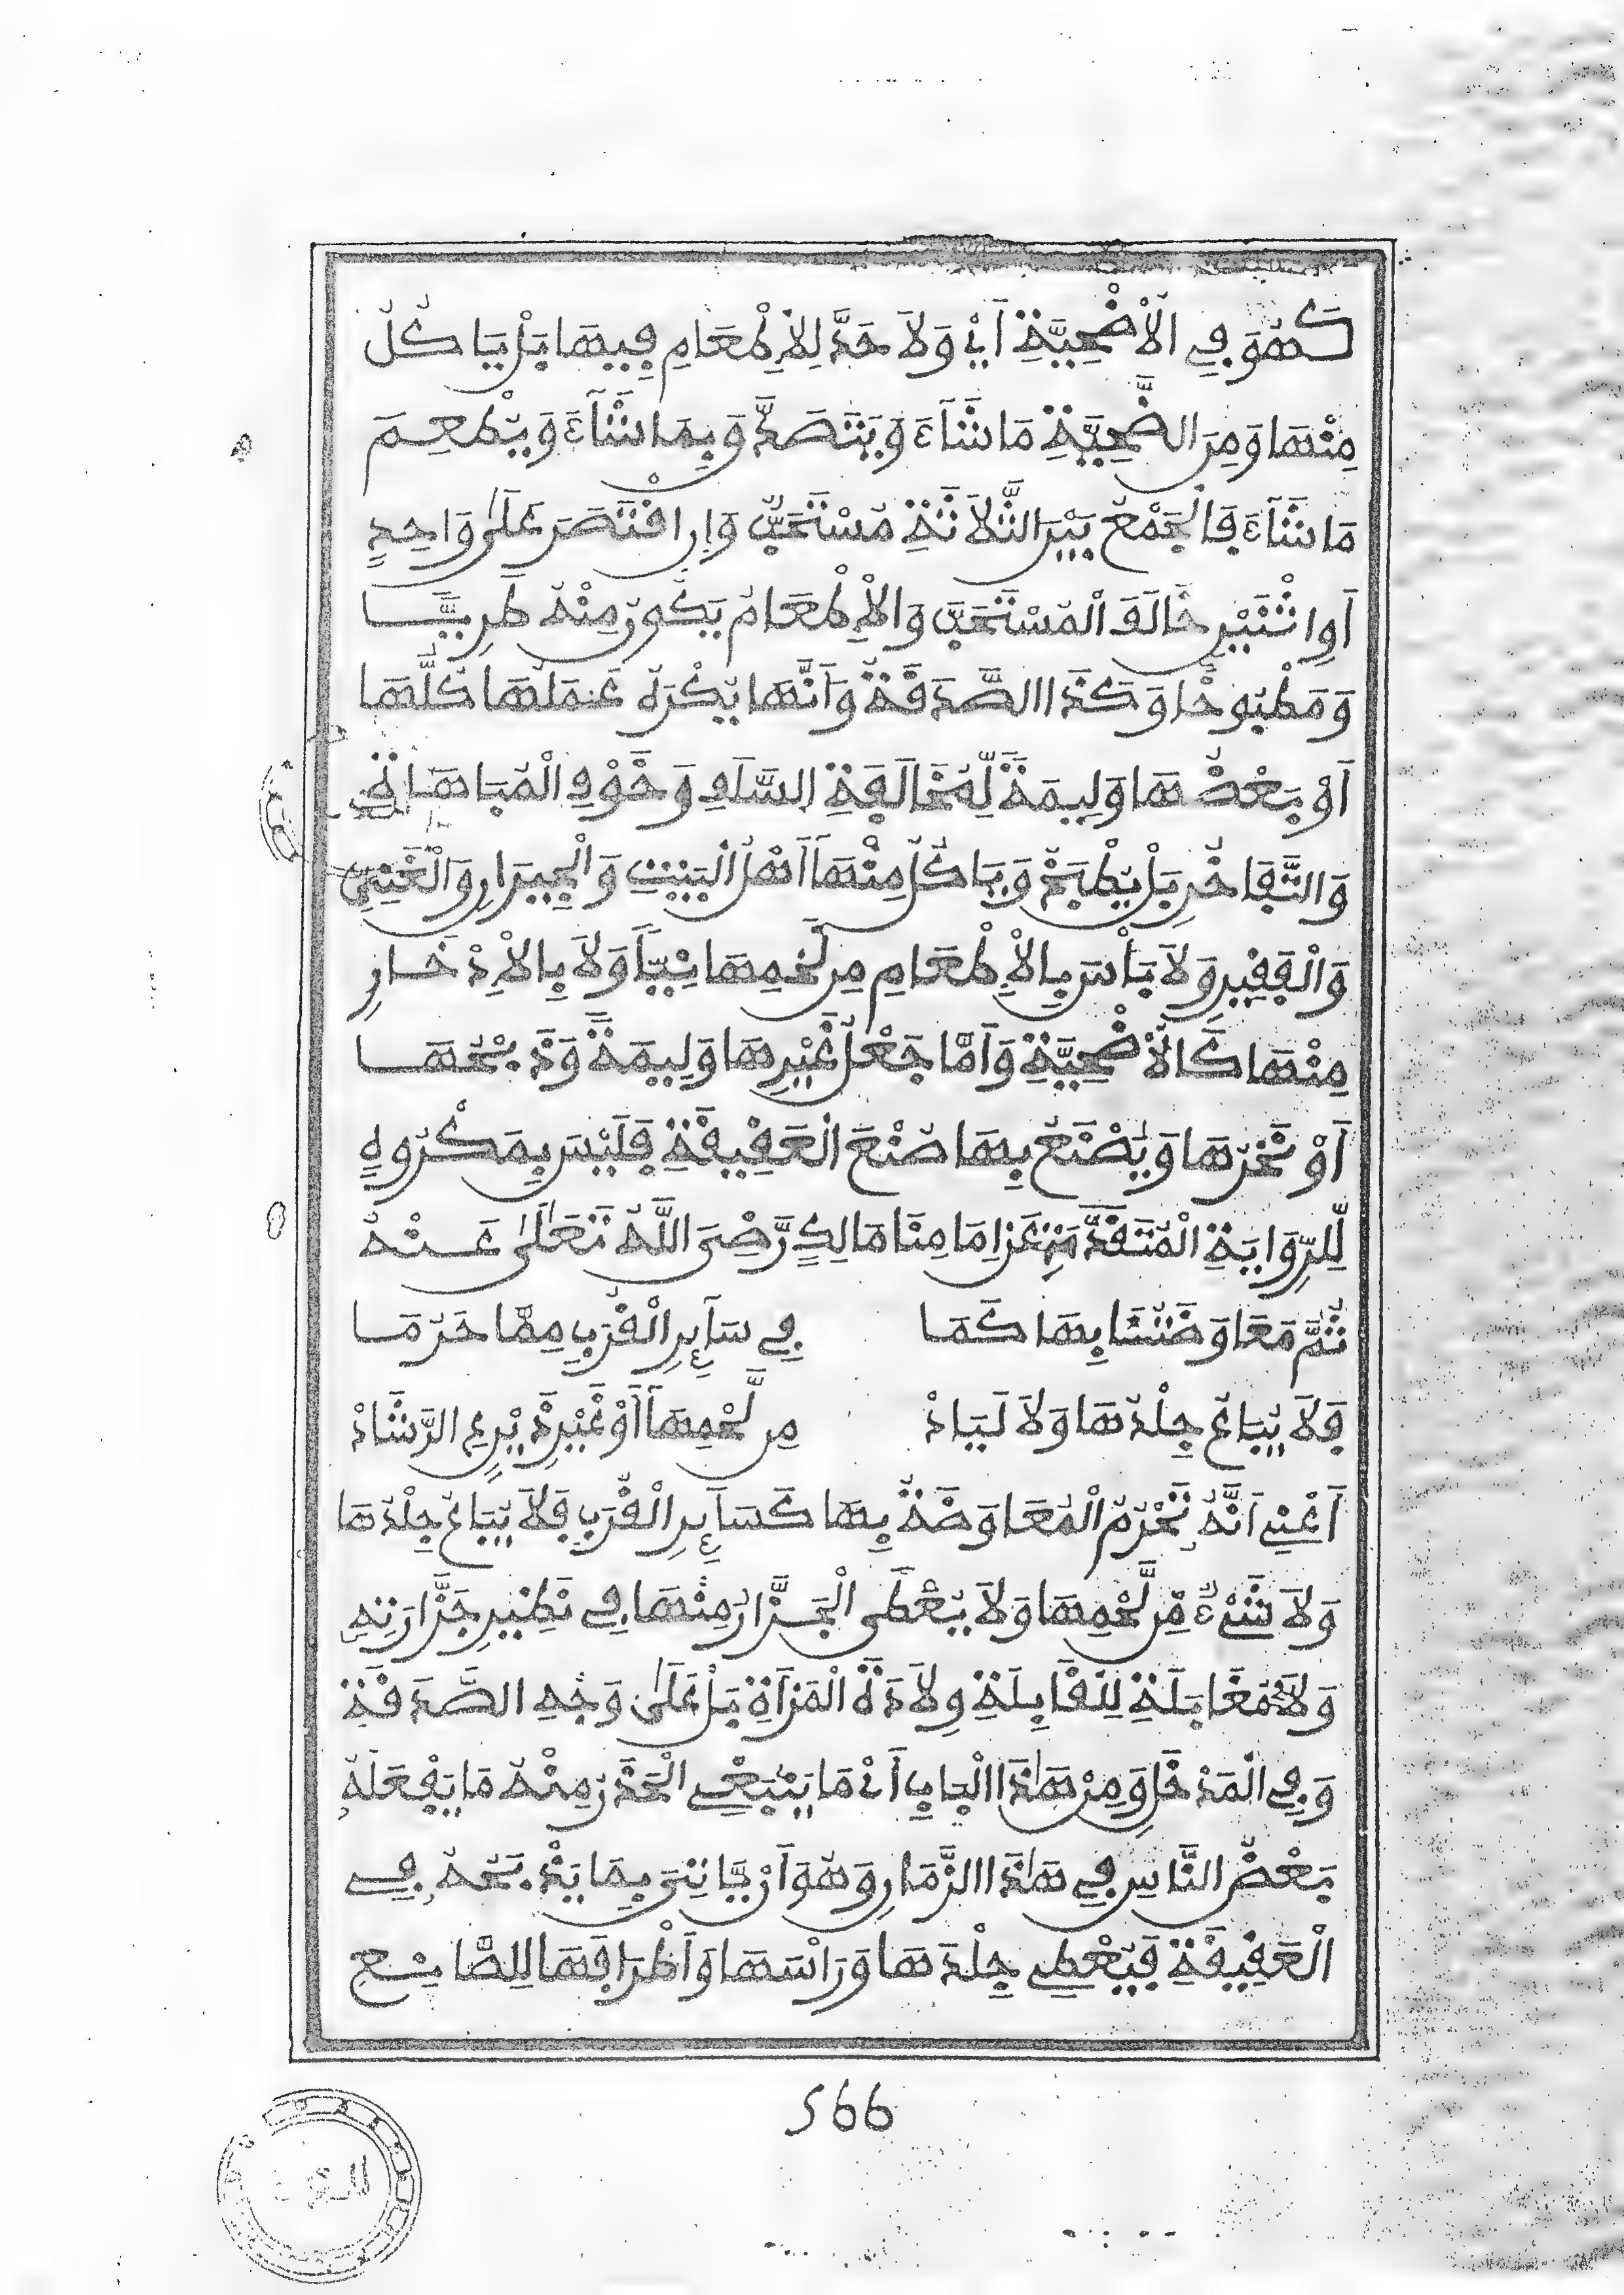 كَهُوَ فِي الْأُضْحِيَّةِ أَيْ وَلَا حَدَّ لِلْإِطْعَامِ فِيهَا بَلْ يَاكُلُ
مِنْهَا وَمِنَ الضَّحِيَّةِ مَا شَآءَ وَيَتَصَدَّقُ بِمَا شَآءَ وَيُطْعِمَ
مَا شَآءَ فَالْجَمْعُ بَيْنَ الثَّلَاثَةِ مُسْتَحَبٌّ وَإِنِ اقْتَصَرَ عَلَى وَاحِدٍ
أَوِ اثْنَيْنِ خَالَفَ الْمُسْتَحَبَّ وَالْإِطْعَامُ يَكُونُ مِنْهُ طَرِيًّا
وَمَطْبُوخًا وَكَذَا الصَّدَقَةُ وَأَنَّهَا يُكْرَهُ عَمَلُهَا كُلُّهَا
أَوْ بَعْضُهَا وَلِيمَةً لِّمُخَالَفَةِ السَّلَفِ وَخَوْفِ الْمُبَاهَاةِ
وَالتَّفَاخُرِ بَلْ يُطْبَخُ وَيَاكُلُ مِنْهَا أَهْلُ الْبَيْتِ وَالْجِيرَانِ وَالْغَنِيِّ
وَالْفَقِيرِ وَلَا بَأْسَ بِالْإِطْعَامِ مِن لَّحْمِهَا نِيًّا وَلَا بِالْإِدْخَارِ
مِنْهَا كَالْأُضْحِيَّةِ وَأَمَّا جَعْلُ غَيْرِهَا وَلِيمَةً وَذَبْحُهَا
أَوْ نَحْرُهَا وَيَصْنَعُ بِهَا صُنْعَ الْعَقِيقَةِ فَلَيْسَ بِمَكْرُوهٍ
لِّلرِّوَايَةِ الْمُتَقَدَّمَةِ عَنْ إِمَامِنَا مَالِكٍ رَّضِيَ اللَّهُ تَعَالَى عَنْهُ
ثُمَّ مُعَاوَضَتُنَا بِهَا كَمَا فِي سَآئِرِ الْقُرَبِ مِمَّا حَرُمَا
فَلَا يُبَاعُ جِلْدُهَا وَلَا لَبَادْ مِن لَّحْمِهَا أَوْ غَيْرِهِ يُرِي الرَّشَادْ
أَعْنِي أَنَّهُ تَحْرُمُ الْمُعَاوَضَةُ بِهَا كَسَآئِرِ الْقُرَبِ فَلَا يُبَاعُ جِلْدُهَا
وَلَا شَيْءٌ مِّن لَّحْمِهَا وَلَا يُعْطَى الْجَزَّارُ مِنْهَا فِي نَظِيرِ جَزَّارَتِهِ
وَلَا مُقَابَلَةِ لِلْقَابِلَةِ وِلَادَةَ الْمَرْأَةِ بَلْ عَلَى وَجْهِ الصَّدَقَةِ
وَفِي الْمَدْخَلِ وَمِنْ هَذَا الْبَابِ أَيْ مَا يَنْبَغِي الْحَذَرُ مِنْهُ مَا يَفْعَلُهُ
بَعْضُ النَّاسِ فِي هَذَا الزَّمَانِ وَهُوَ أَنْ يَّاتِيَ بِمَا يَذْبَحُهُ فِي
الْعَقِيقَةِ فَيُعْطِي جِلْدَهَا وَرَاسَهَا وَأَطْرَافَهَا لِلصَّانِعِ
566